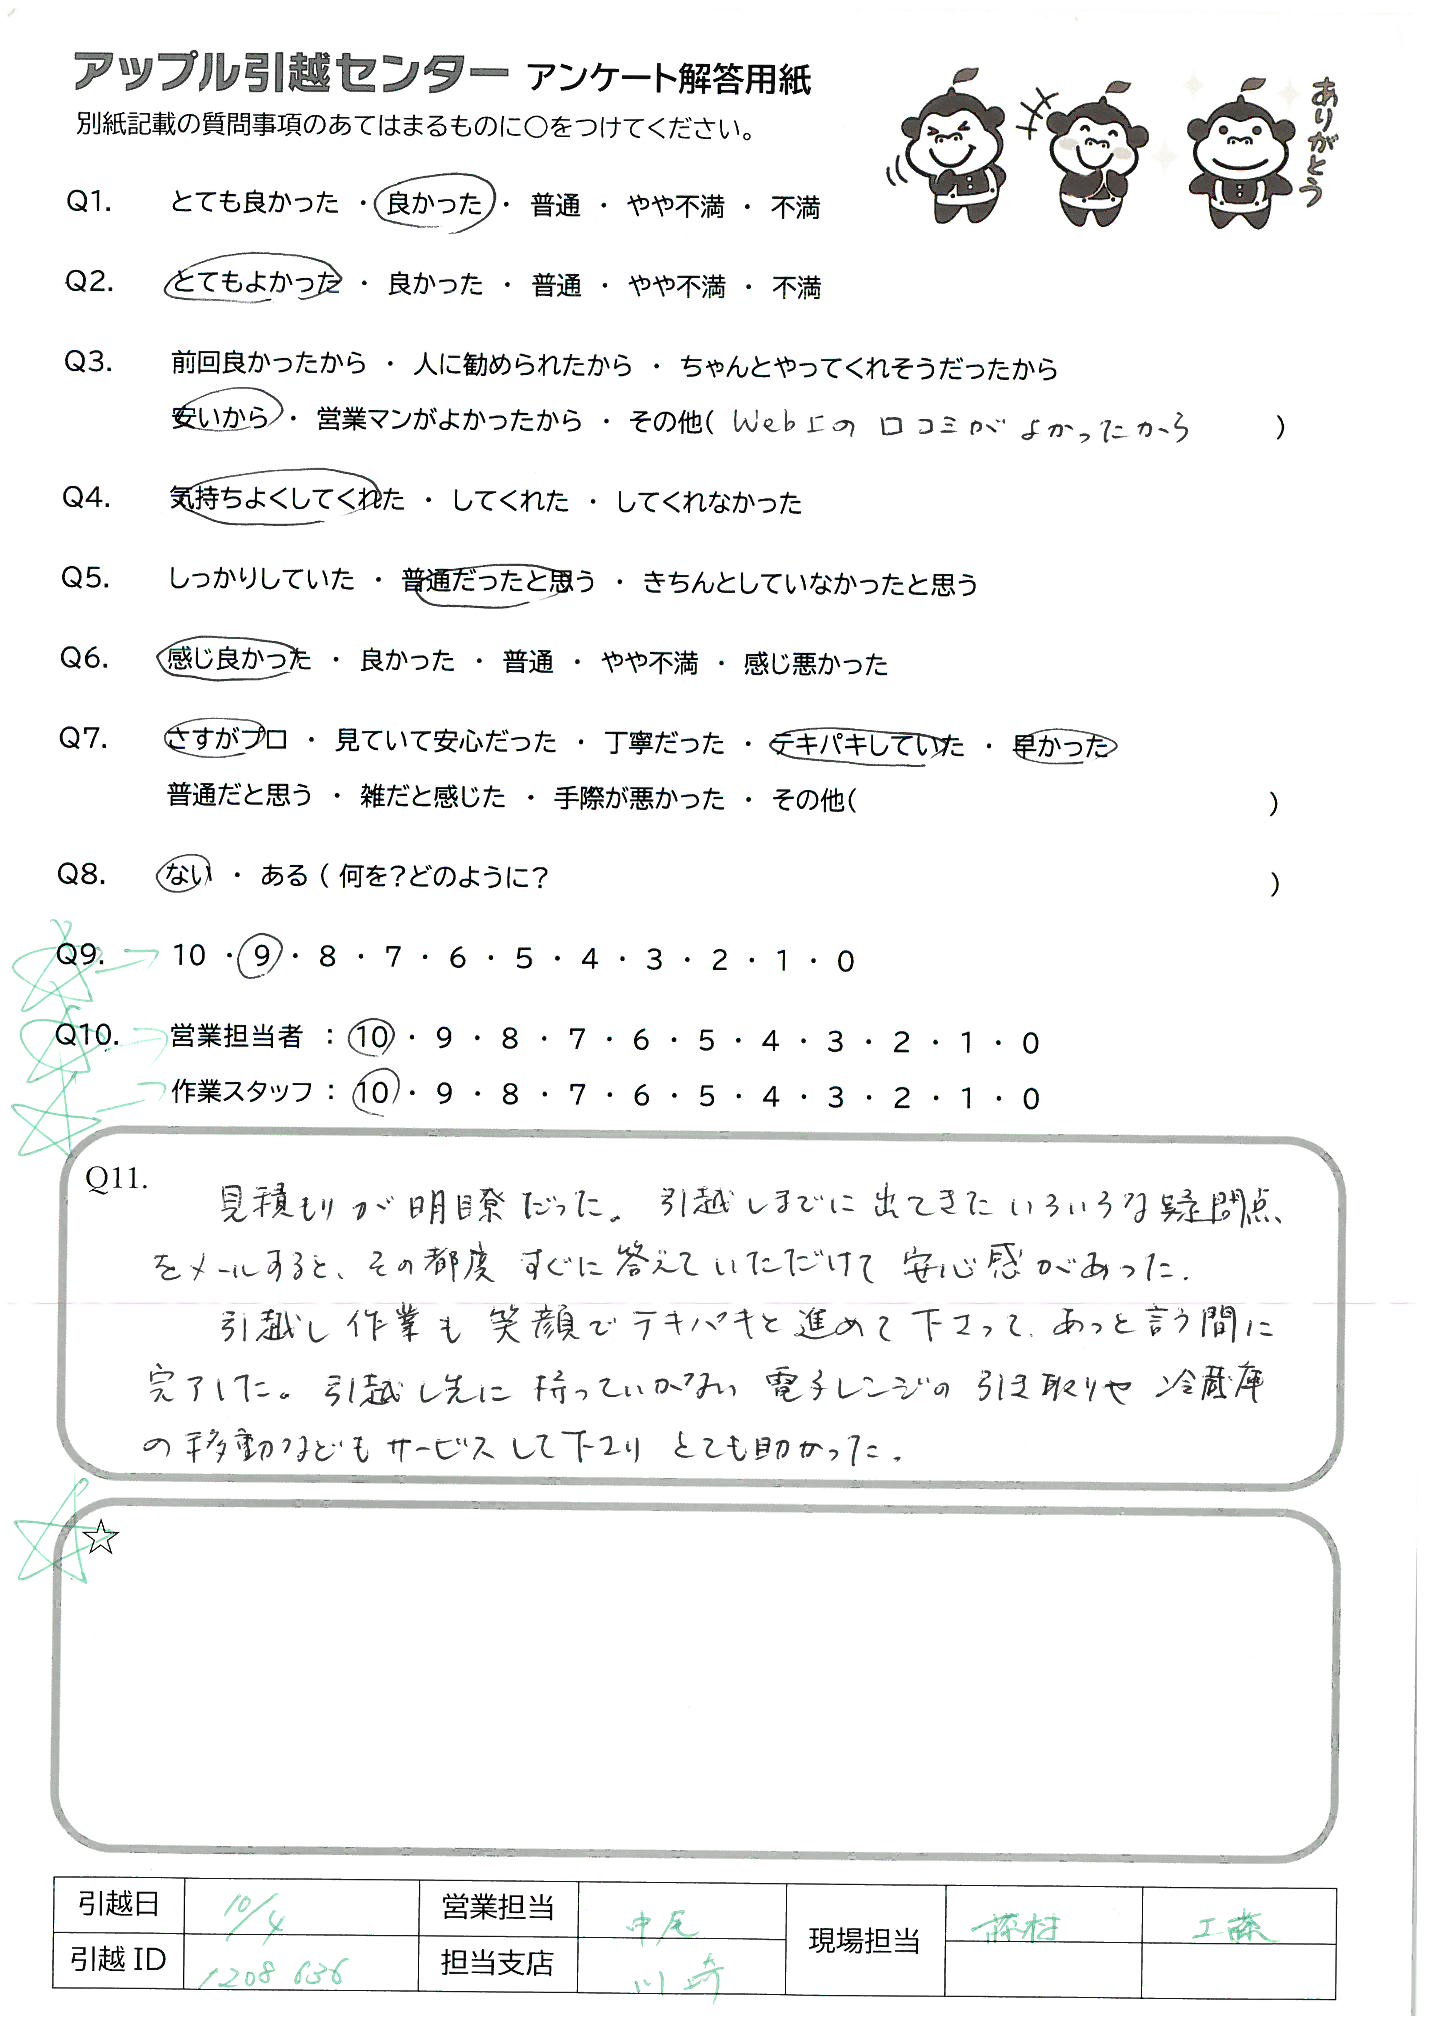 アップル引越センター アンケート解答用紙
別紙記載の質問事項のあてはまるものに○をつけてください。
ありがとう
Q1. とても良かった ・ 良かった ・ 普通 ・ やや不満 ・ 不満
Q2. とてもよかった ・ 良かった ・ 普通 ・ やや不満 ・ 不満
Q3. 前回良かったから ・ 人に勧められたから ・ ちゃんとやってくれそうだったから
安いから ・ 営業マンがよかったから ・ その他( Web上の口コミがよかったから )
Q4. 気持ちよくしてくれた ・ してくれた ・ してくれなかった
Q5. しっかりしていた ・ 普通だったと思う ・ きちんとしていなかったと思う
Q6. 感じ良かった ・ 良かった ・ 普通 ・ やや不満 ・ 感じ悪かった
Q7. さすがプロ ・ 見ていて安心だった ・ 丁寧だった ・ テキパキしていた ・ 早かった
普通だと思う ・ 雑だと感じた ・ 手際が悪かった ・ その他( )
Q8. ない ・ ある ( 何を？どのように？ )
Q9. 10 ・ 9 ・ 8 ・ 7 ・ 6 ・ 5 ・ 4 ・ 3 ・ 2 ・ 1 ・ 0
Q10. 営業担当者 : 10 ・ 9 ・ 8 ・ 7 ・ 6 ・ 5 ・ 4 ・ 3 ・ 2 ・ 1 ・ 0
作業スタッフ : 10 ・ 9 ・ 8 ・ 7 ・ 6 ・ 5 ・ 4 ・ 3 ・ 2 ・ 1 ・ 0
Q11.
見積もりが明瞭だった。引越しまでに出てきたいろいろな疑問点、
をメールすると、その都度すぐに答えていただけて安心感があった。
引越し作業も笑顔でテキパキと進めて下さって、あっと言う間に
完了した。引越し先に持っていかない電子レンジの引き取りや冷蔵庫
の移動などもサービスして下さりとても助かった。
☆
引越日 10/4 営業担当 中尾 現場担当 藤村 工藤
引越ID 1208636 担当支店 川崎